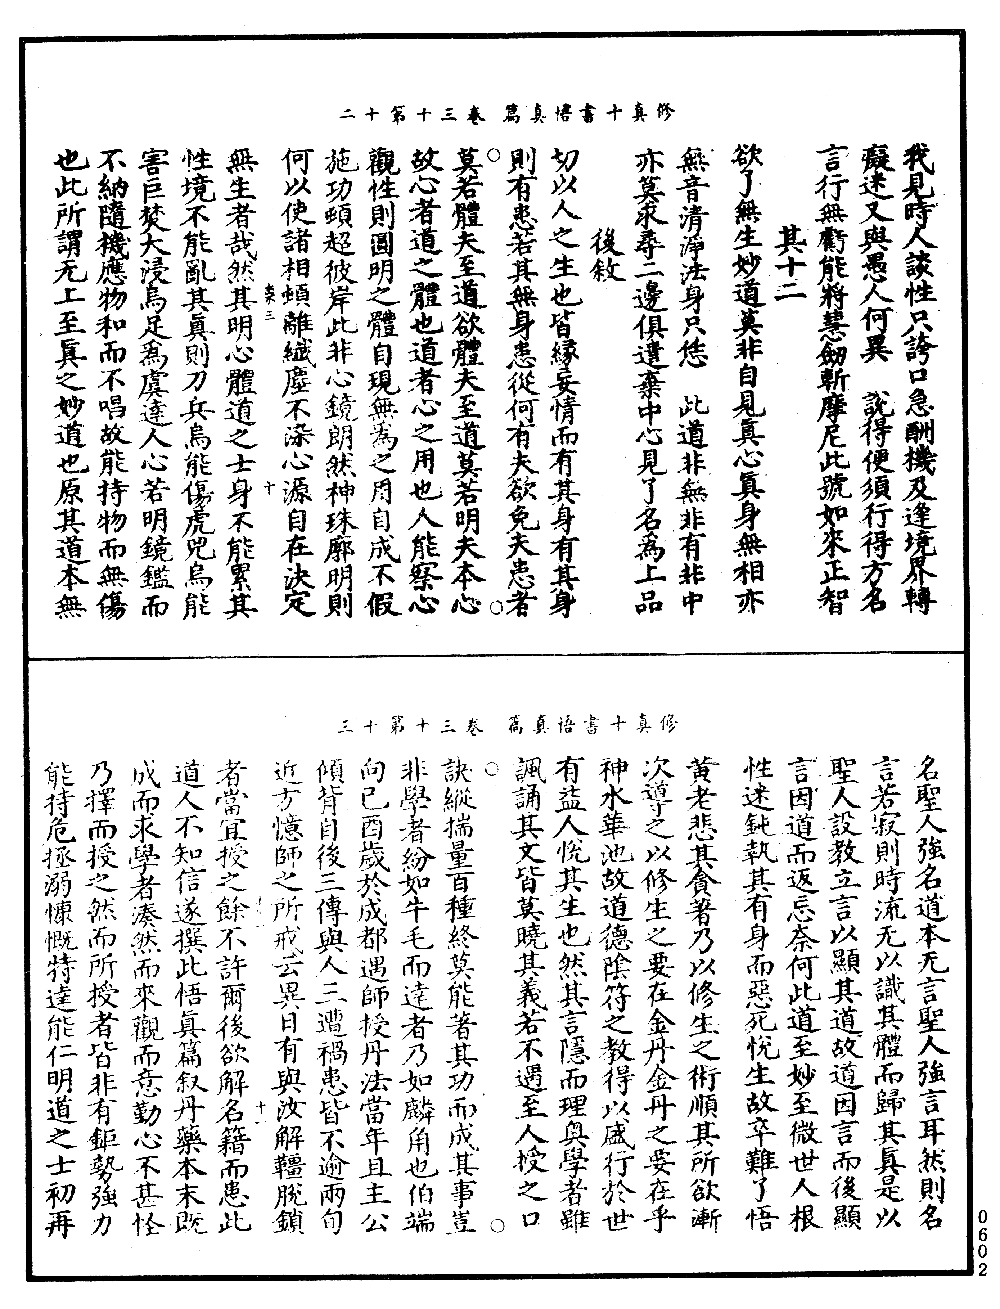 修真十書悟真篇卷三十第十二
我見時人談性只誇口急酬機及逢境界轉
癡迷又與愚人何異　說得便須行得方名
言行無虧能將慧劒斬摩尼此號如來正智
其十二
欲了無生妙道莫非自見真心真身無相亦
無音清淨法身只恁　此道非無非有非中
亦莫求尋二邊俱遣棄中心見了名為上品
後敘
切以人之生也皆緣妄情而有其身有其身
則有患若其無身患從何有夫欲免夫患者
莫若體夫至道欲體夫至道莫若明夫本心
故心者道之體也道者心之用也人能察心
觀性則圓明之體自現無為之用自成不假
施功頓超彼岸此非心鏡朗然神珠廓明則
何以使諸相頓離纖塵不染心源自在決定
無生者哉然其明心體道之士身不能累其
性境不能亂其真則刀兵烏能傷虎兕烏能
害巨焚大浸烏足為虞達人心若明鏡鑑而
不納隨機應物和而不唱故能持物而無傷
也此所謂无上至真之妙道也原其道本無
修真十書悟真篇卷三十第十三
名聖人強名道本无言聖人強言耳然則名
言若寂則時流无以識其體而歸其真是以
聖人設教立言以顯其道故道因言而後顯
言因道而返忘奈何此道至妙至微世人根
性迷鈍執其有身而惡死悅生故卒難了悟
黃老悲其貪著乃以修生之術順其所欲漸
次導之以修生之要在金丹金丹之要在乎
神水華池故道德陰符之教得以盛行於世
有益人悅其生也然其言隱而理奧學者雖
諷誦其文皆莫曉其義若不遇至人授之口
訣縱揣量百種終莫能著其功而成其事豈
非學者紛如牛毛而達者乃如麟角也伯端
向己酉歲於成都遇師授丹法當年且主公
傾背自後三傳與人三遭禍患皆不逾兩旬
近方憶師之所戒云異日有與汝解韁脫鎖
者當宜授之餘不許爾後欲解名籍而患此
道人不知信遂撰此悟真篇叙丹藥本末既
成而求學者湊然而來觀而意勤心不甚恡
乃擇而授之然而所授者皆非有鉅勢強力
能持危拯溺慷慨特達能仁明道之士初再
0602